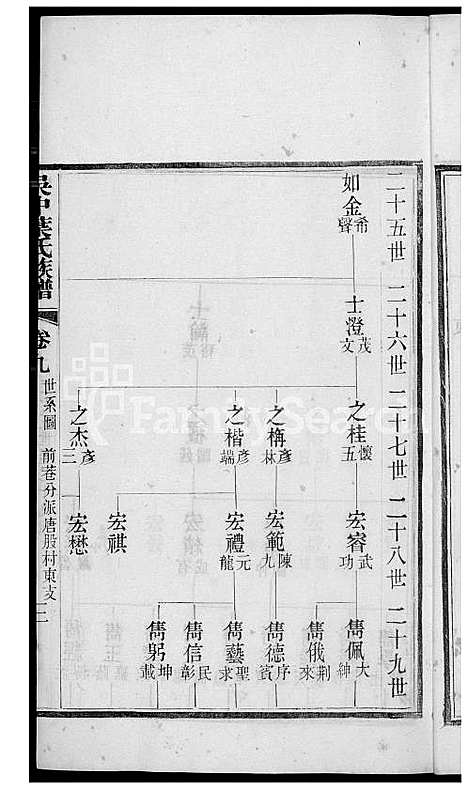 二十五世 二十六世 二十七世 二十八世 二十九世
如金 希聲
士澄 茂文
之桂 懷五
宏睿 武功
雋佩 大紳
雋俄 荆來
之栴 彥林
宏範 陳九
雋德 序賓
之楷 彥端
宏禮 元龍
雋藝 聖求
雋信 民彰
雋躬 坤載
宏祺
之杰 彥三
宏懋
吳中葉氏族譜
卷九 世系圖 前巷分派唐股村東支 二
FamilySearch